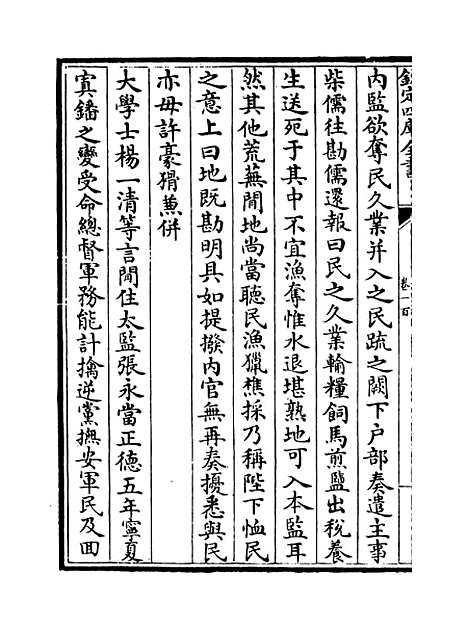 欽定四庫全書
卷一百
内監欲奪民久業并入之民疏之闕下户部奏遣主事
柴儒往勘儒還報曰民之久業輸糧飼馬煎鹽出税養
生送死于其中不宜漁奪惟水退堪熟地可入本監耳
然其他荒蕪閒地尚當聽民漁獵樵採乃稱陛下恤民
之意上曰地既勘明具如提撥内官無再奏擾悉與民
亦毋許豪猾蒹併
大學士楊一清等言閒住太監張永當正德五年寧夏
寘鐇之變受命總督軍務能計擒逆黨撫安軍民及回